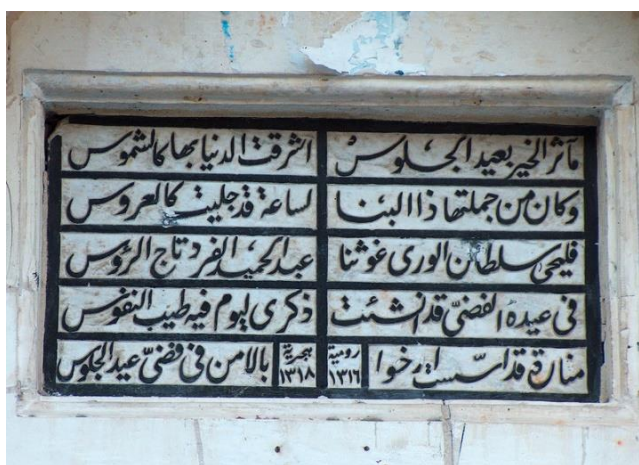 مآثر الخير بعيد الجلوس اشرقت الدنيا بها كالشموس
وكان من جملتها ذا البنا لساعة قد جليت كالعروس
فليحي سلطان الورى غوثنا عبد الحميد الفرد تاج الرؤس
في عيده الفضي قد انشئت ذكرى ليوم فيه طيب النفوس
منارة قد اسست ارخوا رومية ١٣١٦ هجرية ١٣١٨ بالامن في فضي عيد الجلوس